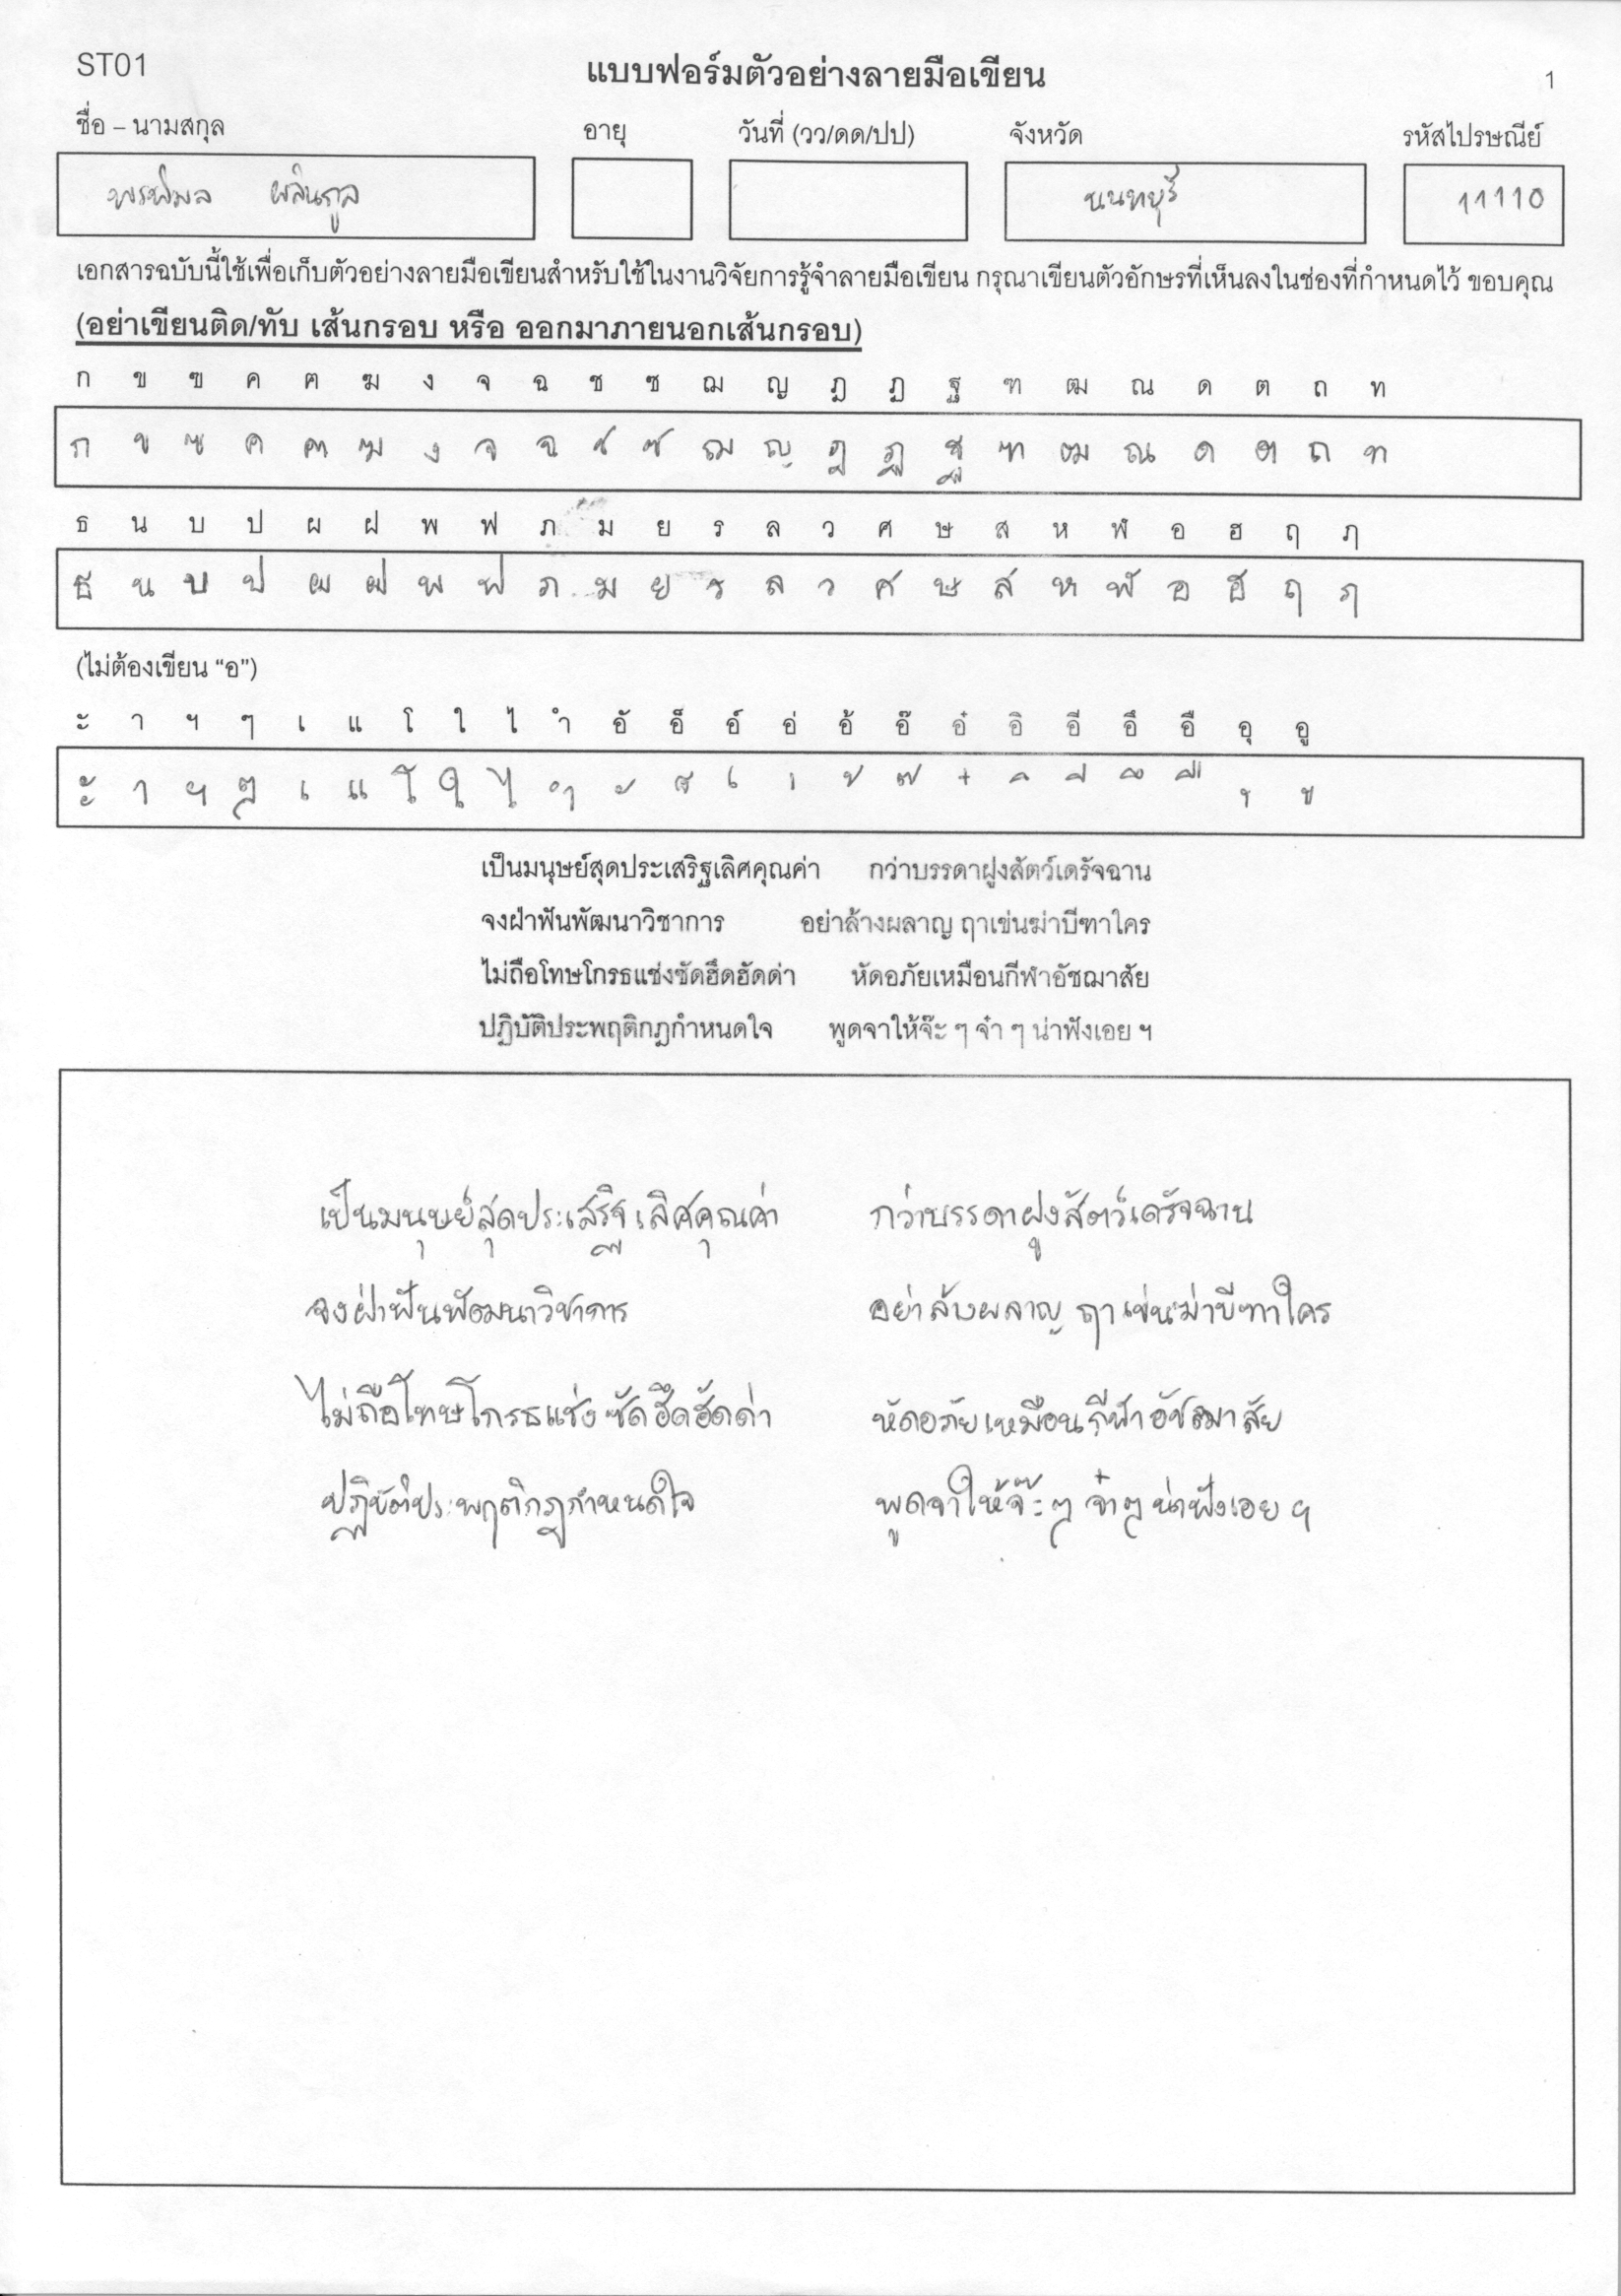 ST01
แบบฟอร์มตัวอย่างลายมือเขียน
1
ชื่อ – นามสกุล อายุ วันที่ (วว/ดด/ปป) จังหวัด รหัสไปรษณีย์
พรพิมล ผลินกูล นนทบุรี 11110
เอกสารฉบับนี้ใช้เพื่อเก็บตัวอย่างลายมือเขียนสำหรับใช้ในงานวิจัยการรู้จำลายมือเขียน กรุณาเขียนตัวอักษรที่เห็นลงในช่องที่กำหนดไว้ ขอบคุณ
(อย่าเขียนติด/ทับ เส้นกรอบ หรือ ออกมาภายนอกเส้นกรอบ)
ก ข ฃ ค ฅ ฆ ง จ ฉ ช ซ ฌ ญ ฎ ฏ ฐ ฑ ฒ ณ ด ต ถ ท
ก ข ฃ ค ฅ ฆ ง จ ฉ ช ซ ฌ ญ ฎ ฏ ฐ ฑ ฒ ณ ด ต ถ ท
ธ น บ ป ผ ฝ พ ฟ ภ ม ย ร ล ว ศ ษ ส ห ฬ อ ฮ ฤ ฦ
ธ น บ ป ผ ฝ พ ฟ ภ ม ย ร ล ว ศ ษ ส ห ฬ อ ฮ ฤ ฦ
(ไม่ต้องเขียน “อ”)
ะ า ฯ ๆ เ แ โ ใ ไ ำ อั อ็ อ์ อ่ อ้ อ๊ อ๋ อิ อี อึ อื อุ อู
ะ า ฯ ๆ เ แ โ ใ ไ ำ ั ็ ์ ่ ้ ๊ ๋ ิ ี ึ ื ุ ู
เป็นมนุษย์สุดประเสริฐเลิศคุณค่า กว่าบรรดาฝูงสัตว์เดรัจฉาน
จงฝ่าฟันพัฒนาวิชาการ อย่าล้างผลาญ ฤาเข่นฆ่าบีฑาใคร
ไม่ถือโทษโกรธแช่งซัดฮึดฮัดด่า หัดอภัยเหมือนกีฬาอัชฌาสัย
ปฏิบัติประพฤติกฎกำหนดใจ พูดจาให้จ๊ะ ๆ จ๋า ๆ น่าฟังเอย ฯ
เป็นมนุษย์สุดประเสริฐเลิศคุณค่า กว่าบรรดาฝูงสัตว์เดรัจฉาน
จงฝ่าฟันพัฒนาวิชาการ อย่าล้างผลาญ ฤาเข่นฆ่าบีฑาใคร
ไม่ถือโทษโกรธแช่งซัดฮึดฮัดด่า หัดอภัยเหมือนกีฬาอัชฌาสัย
ปฏิบัติประพฤติกฎกำหนดใจ พูดจาให้จ๊ะ ๆ จ๋า ๆ น่าฟังเอย ฯ